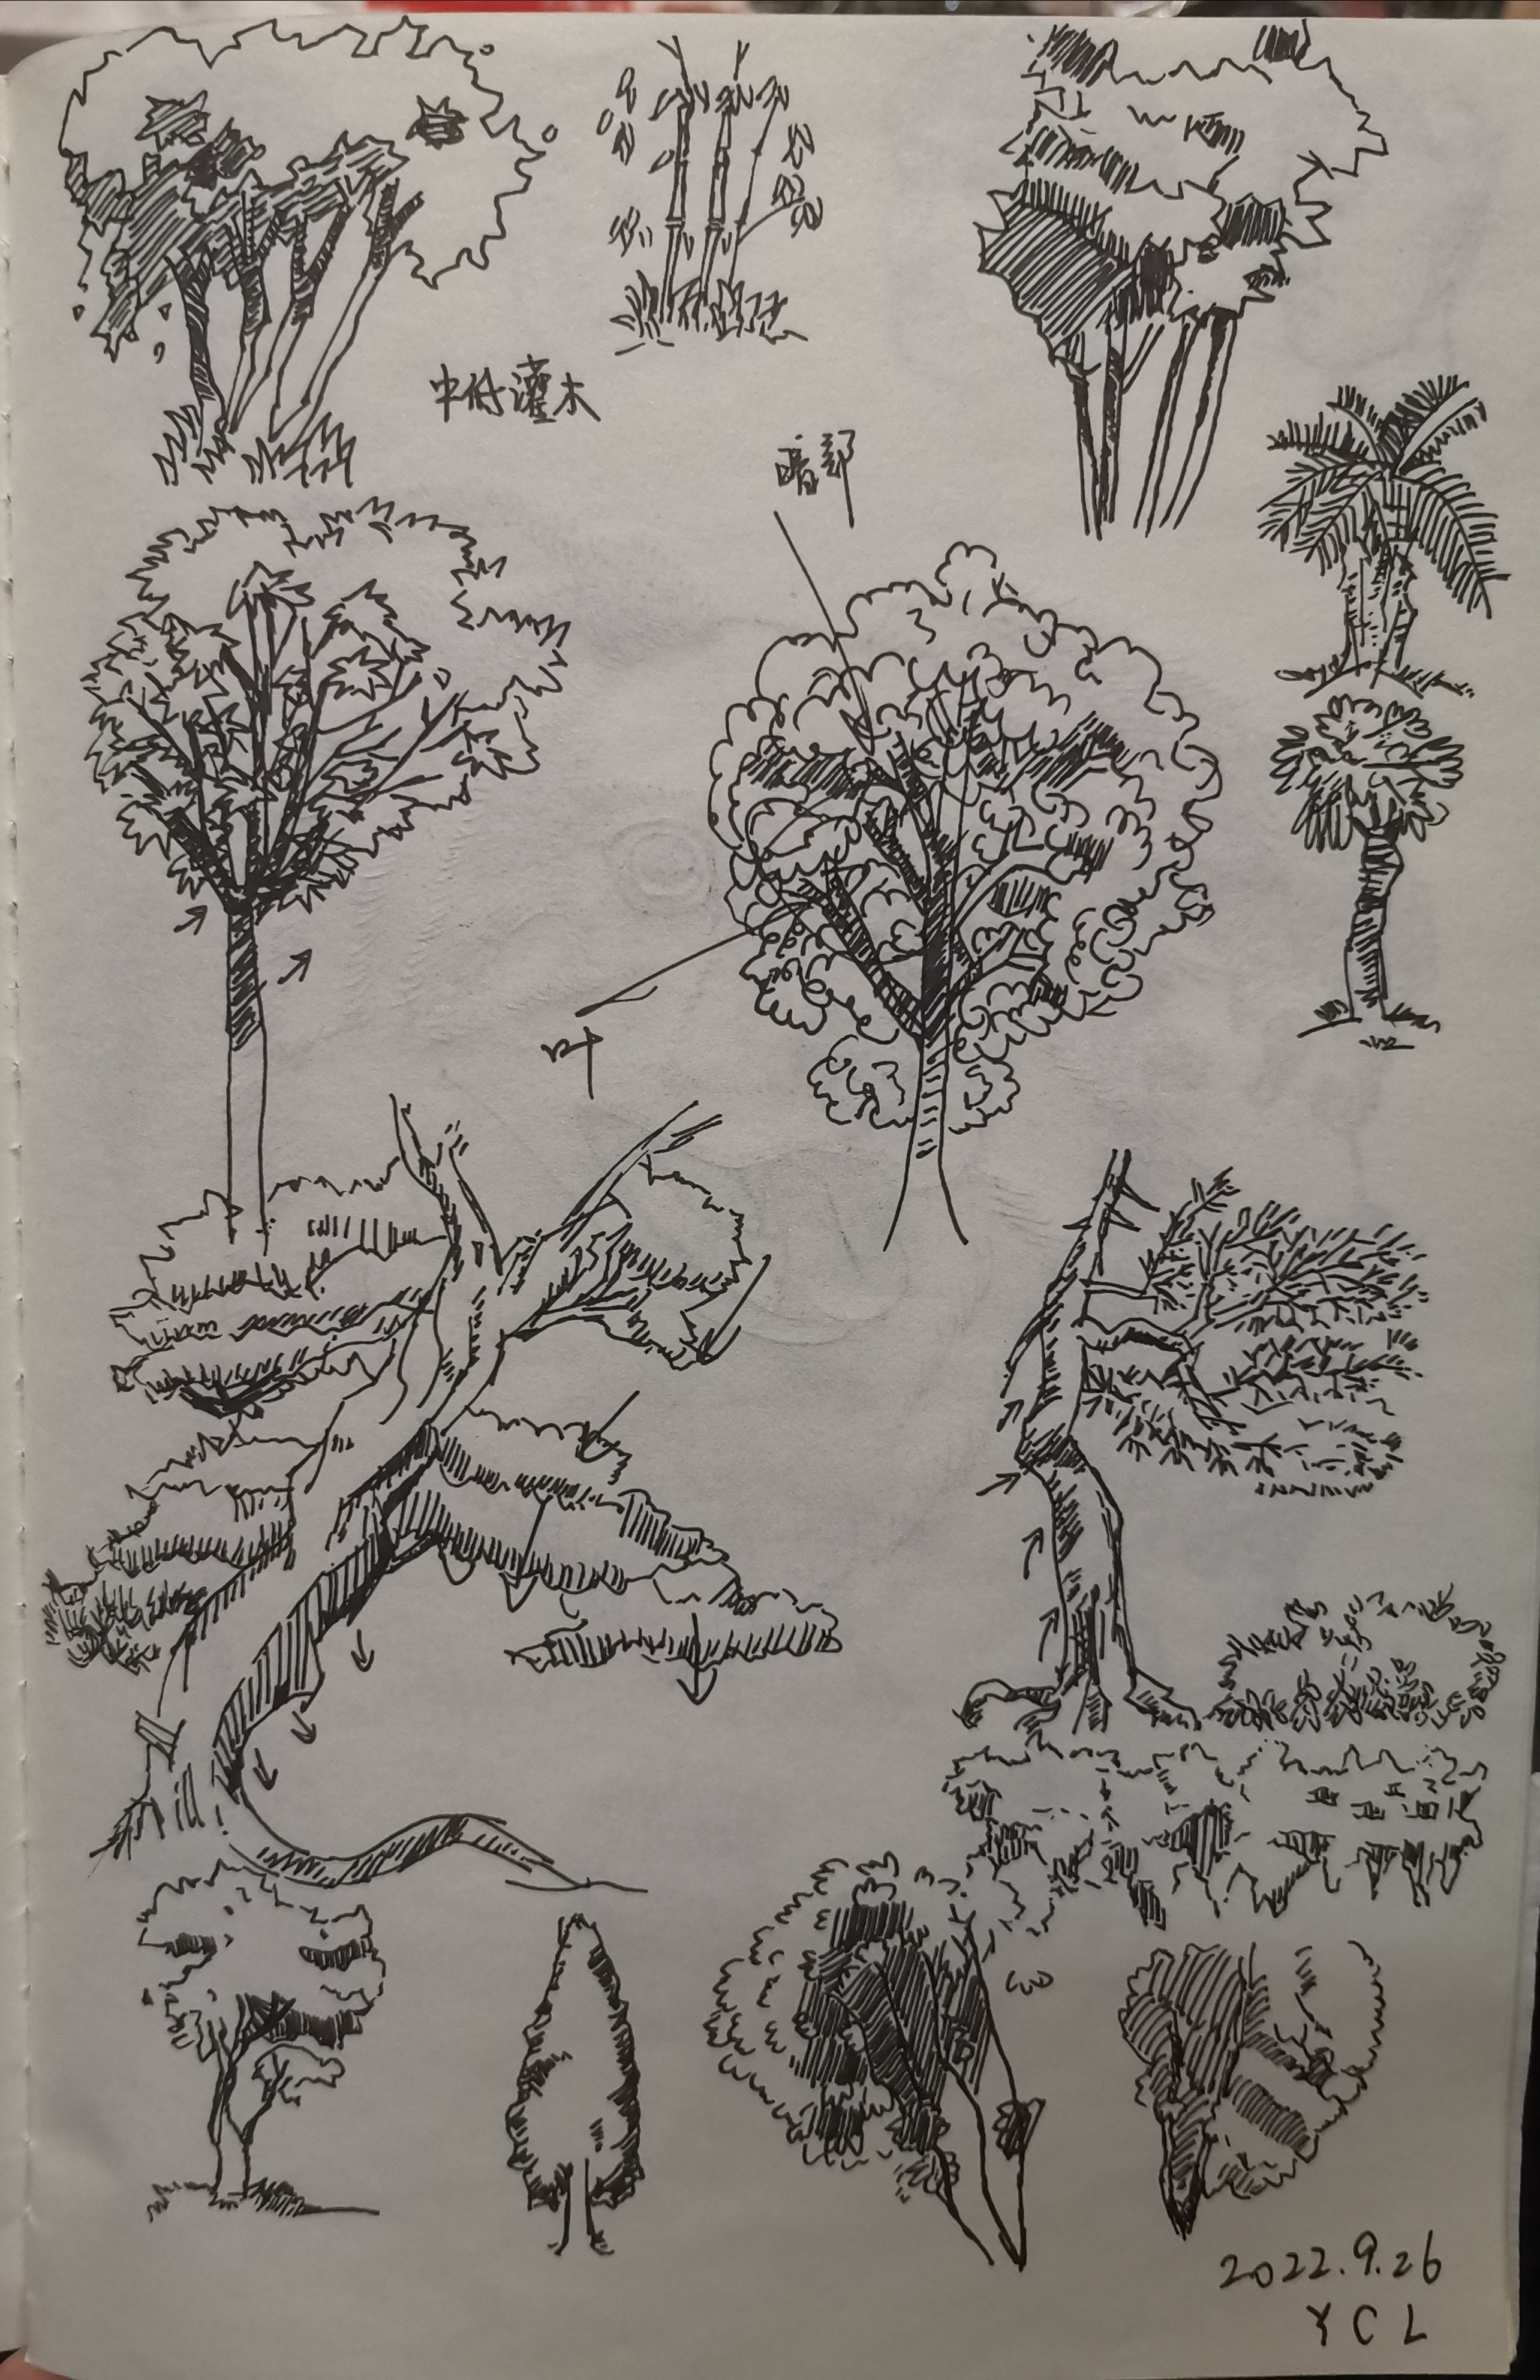 中低灌木
暗部
叶
2022.9.26
YCL